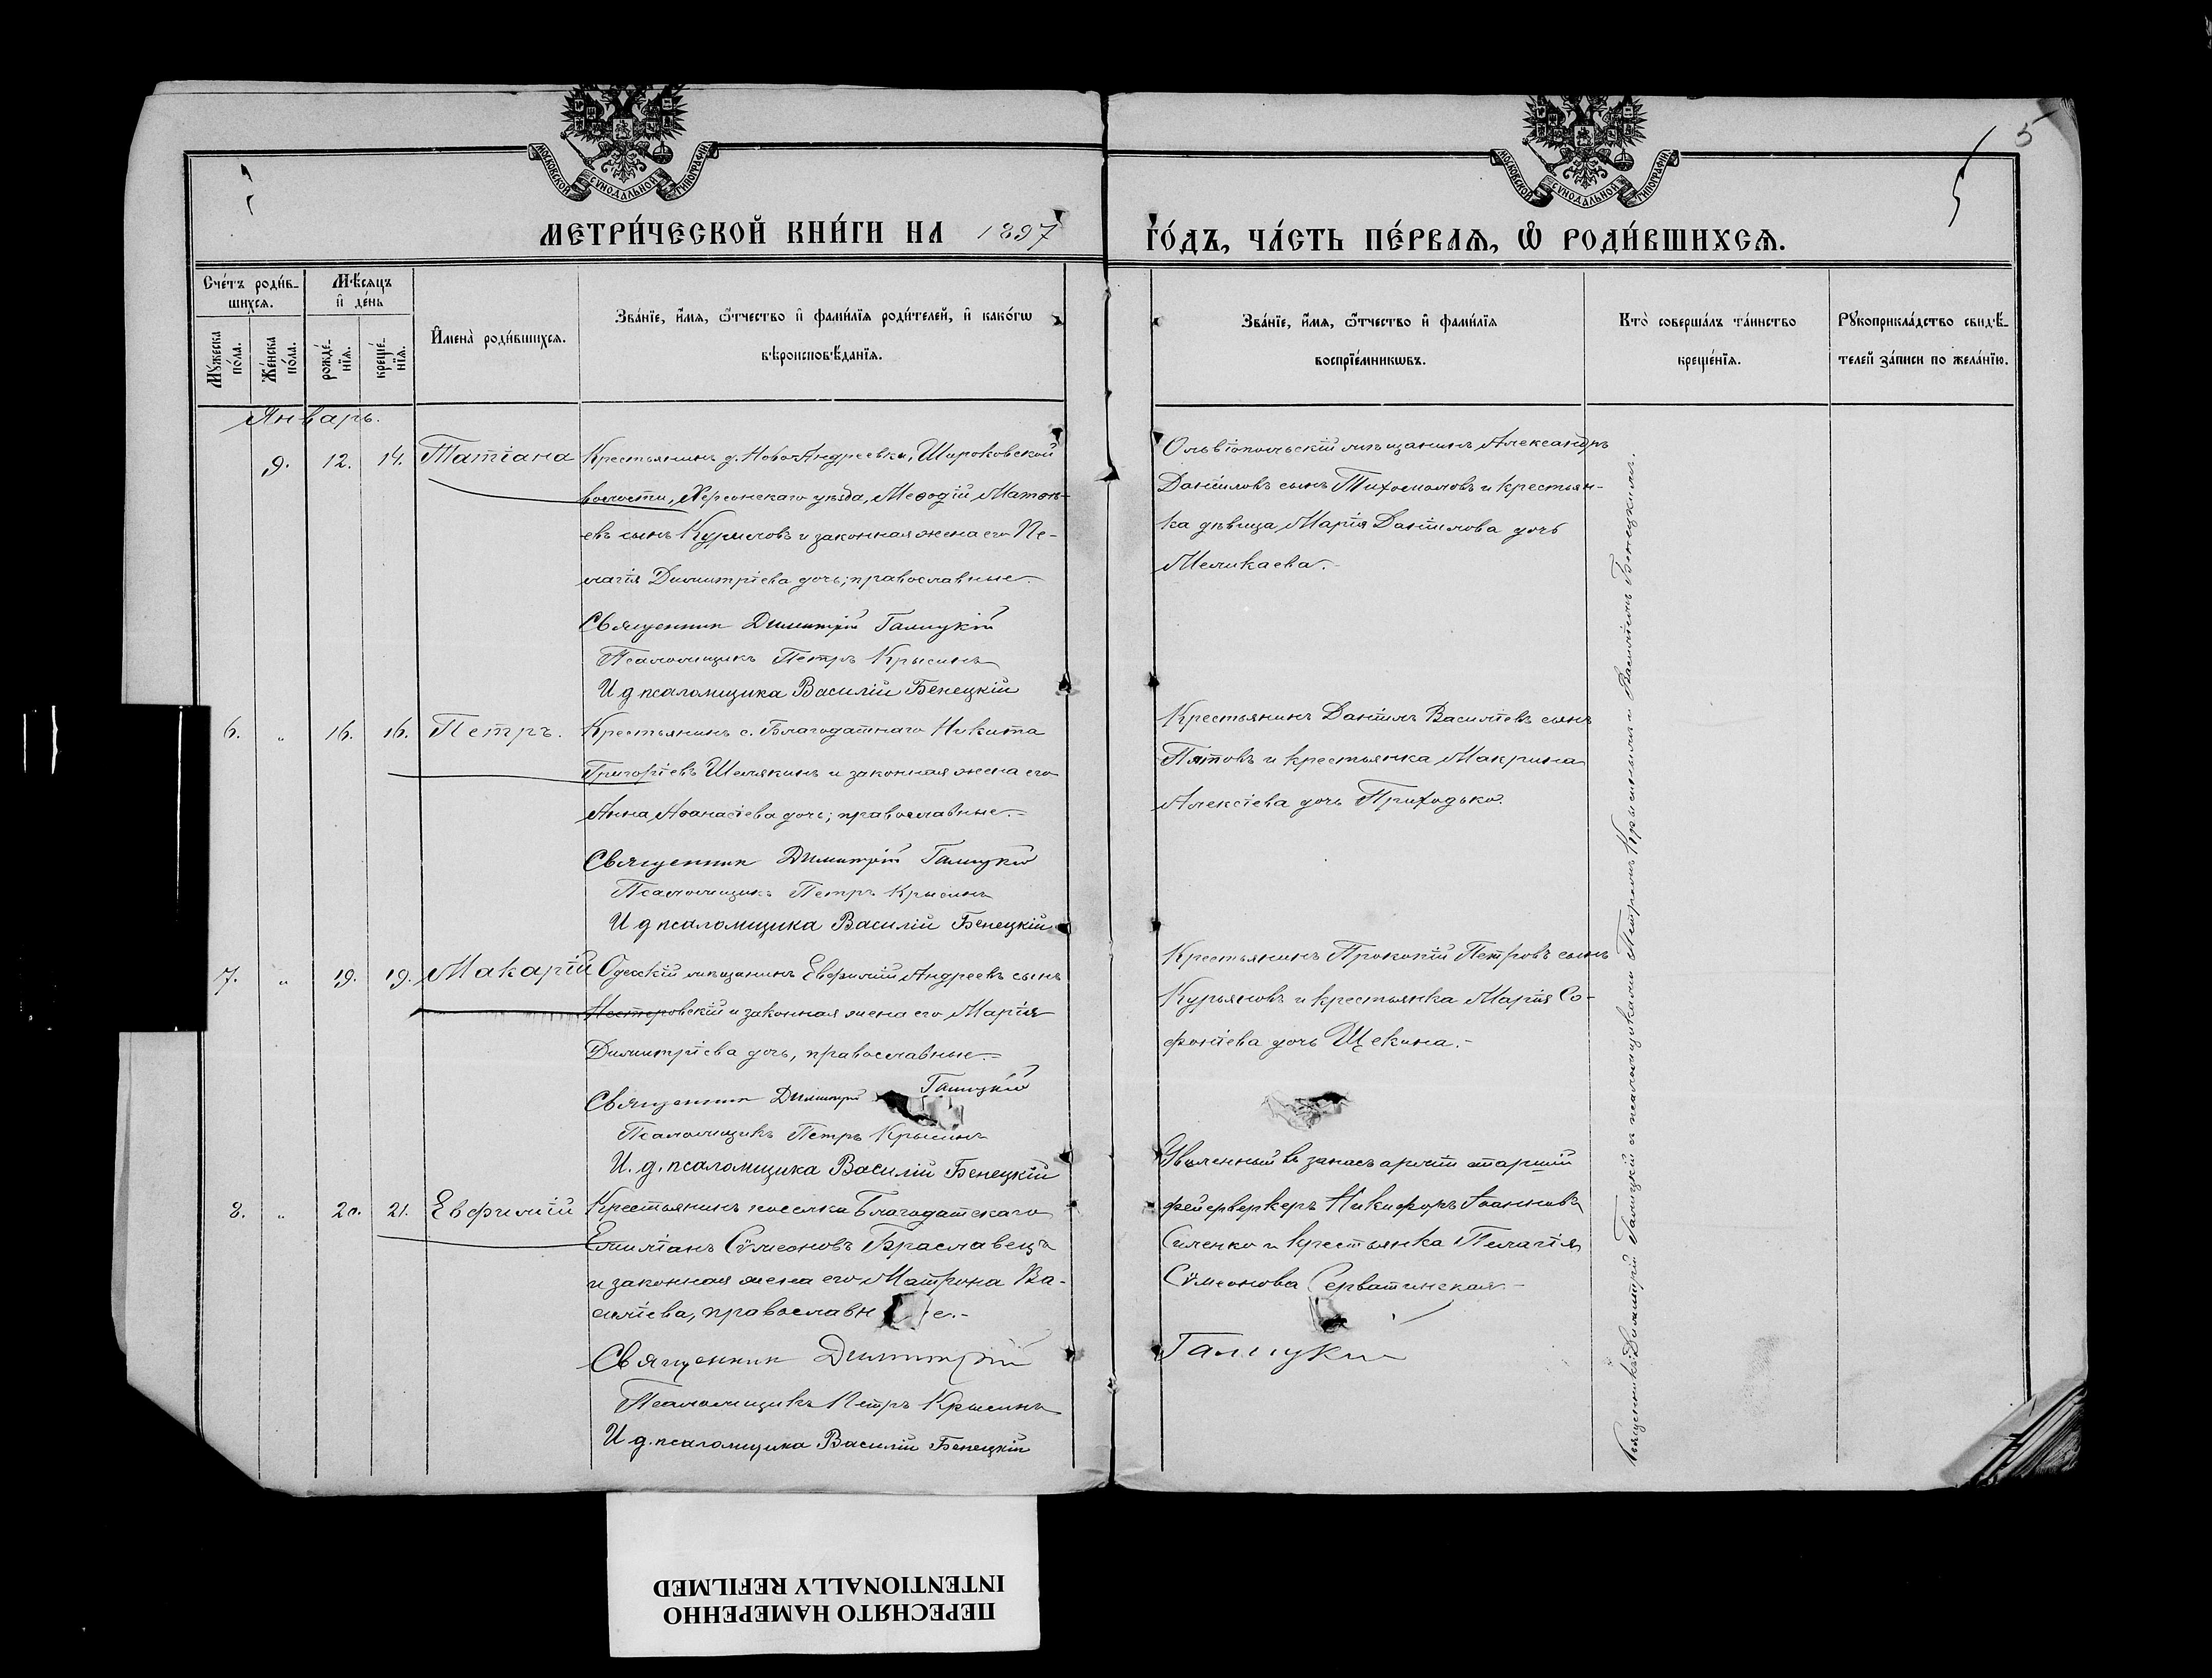 5
МОСКОВСКОЙ СѴНОДАЛЬНОЙ ТИПОГРАФІИ
МОСКОВСКОЙ СѴНОДАЛЬНОЙ ТИПОГРАФІИ
МЕТРИ́ЧЕСКОЙ КНИ́ГИ НА 1897 ГО́ДЪ, ЧА́СТЬ ПЕ́РВАѦ, Ѽ РОДИ́ВШИХСѦ.
Сче́тъ роди́в-
шихсѧ.
Мꙋ́жеска по́ла.
Же́нска по́ла.
Мѣ́сяцъ
и҆ де́нь
рожде́-
нїѧ.
креще́-
нїѧ.
И҆мена̀ роди́вшихсѧ.
Зва́нїе, и҆́мѧ, ѻ҆́тчество и҆ фами́лїѧ роди́телей, и҆ како́гѡ
вѣроисповѣ́данїѧ.
Зва́нїе, и҆́мѧ, ѻ҆́тчество и҆ фами́лїѧ
воспрїе́мникѡвъ.
Кто̀ соверша́лъ та́инство
креще́нїѧ.
Рꙋкоприкла́дство свидѣ́-
телей за́писи по жела́нїю.
Январь.
9. 12. 14. Татіана
Крестьянинъ д. Ново-Андреевки, Широковской
волости, Херсонскаго уѣзда, Меѳодій
евъ сынъ Куриловъ и законная жена его Пе-
лагія Димитріева дочь; православные.
Священник Димитрій Галицкій
Псаломщикъ Петръ Крысинъ
И д псаломщика Василій Бенецкій
Ольвіопольскій мѣщанинъ Александръ
Даніиловъ сынъ и крестьян-
ка дѣвица Марія Даніилова дочь
Меликаева.
6. „ 16. 16. Петръ.
Крестьянинъ с. Благодатнаго Никита
Григоріевъ Шелякинъ и законная жена его
Анна Аѳанасіева дочь; православные.=
Священник Димитрій Галицкій
Псаломщикъ Петръ Крысинъ
И д псаломщика Василій Бенецкій
Крестьянинъ Даніилъ Василіевъ сынъ
Пятовъ и крестьянка Макрина
Алексіева дочь Приходько.
7. „ 19. 19. Макарій
Одесскій мѣщанинъ Евфимій Андреевъ сынъ
Нестеровскій и законная жена его Марія
Димитріева дочь, православные.=
Священник Димитрій Галицкій
Псаломщикъ Петръ Крысинъ
И. д. псаломщика Василій Бенецкій
Крестьянинъ Прокопій Петровъ сынъ
Курьяновъ и крестьянка Марія Со-
фоніева дочь Щекина.-
8. „ 20. 21. Евфимій
Крестьянинъ поселка Благодатскаго
Емиліанъ Сѵмеоновъ Браславецъ
и законная жена его Матрона Ва-
силіева, православн е.-
Священник Димитрій Галицкій
Псаломщикъ Петръ Крысинъ
И д. псаломщика Василій Бенецкій
Уволенный въ запасъ арміи старшій
фейерверкеръ Никифоръ Іоанновъ
Силенко и крестьянка Пелагія
Сѵмеонова Серватинская.-
Священникъ Димитрій Галицкій съ псаломщиками Петромъ Крысинымъ и Василіемъ Бенецкимъ.
ПЕРЕСНЯТО НАМЕРЕННО
INTENTIONALLY REFILMED